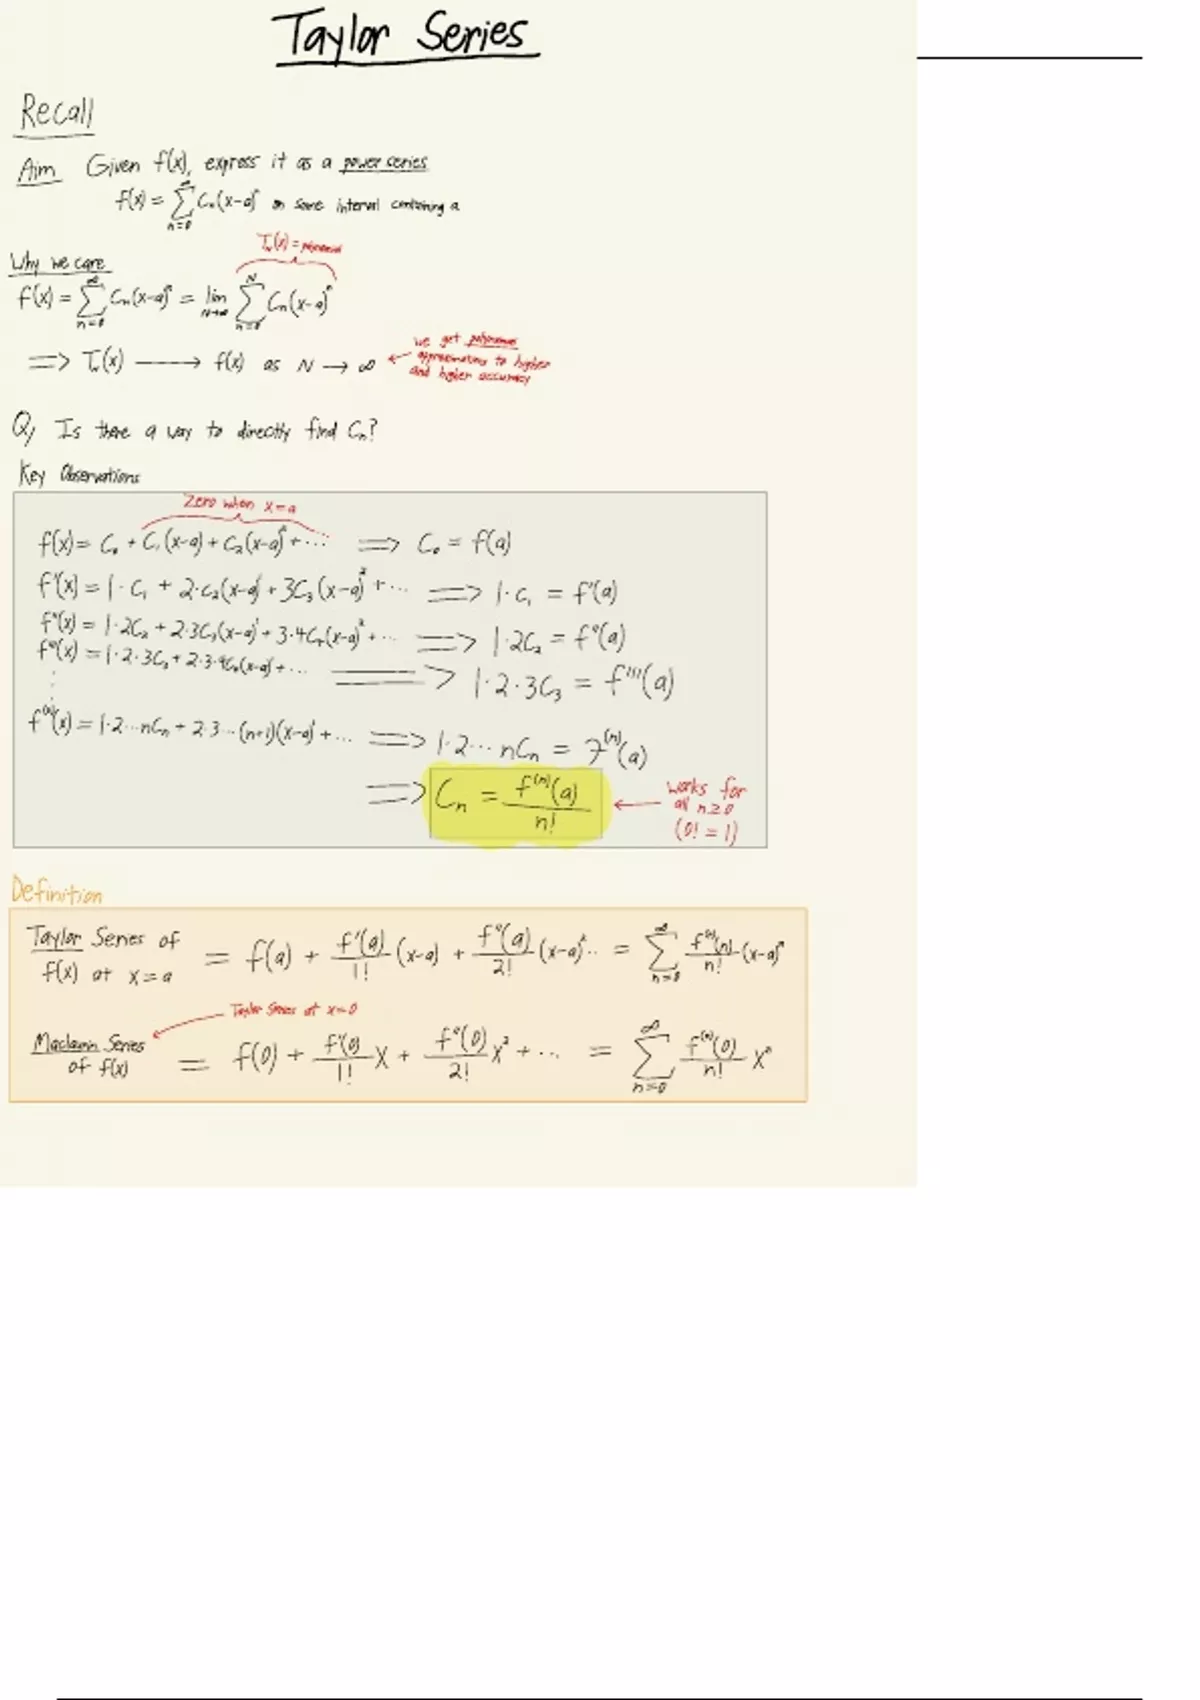 Taylor Series
Recall
Aim Given f(x), express it as a power series
f(x) = ∑_{n=0}^{∞} Cₙ(x-a)ⁿ on some interval containing a
T_N(x) = polynomial
Why we care
f(x) = ∑_{n=0}^{∞} Cₙ(x-a)ⁿ = lim_{N→∞} ∑_{n=0}^{N} Cₙ(x-a)ⁿ
we get polynomial
⟹ T_N(x) ⟶ f(x) as N → ∞ ← approximations to higher
and higher accuracy
Q, Is there a way to directly find Cₙ?
Key Observations
Zero when x=a
f(x) = C₀ + C₁(x-a) + C₂(x-a)² + ... ⟹ C₀ = f(a)
f'(x) = 1·C₁ + 2·C₂(x-a)¹ + 3C₃(x-a)² + ... ⟹ 1·C₁ = f'(a)
f"(x) = 1·2C₂ + 2·3C₃(x-a)¹ + 3·4C₄(x-a)² + ... ⟹ 1·2C₂ = f"(a)
f'''(x) = 1·2·3C₃ + 2·3·4C₄(x-a)¹ + ... ⟹ 1·2·3C₃ = f'''(a)
⋮
f⁽ⁿ⁾(x) = 1·2...nCₙ + 2·3...(n+1)(x-a)¹ + ... ⟹ 1·2...nCₙ = f⁽ⁿ⁾(a)
⟹ Cₙ = f⁽ⁿ⁾(a)/n! ← works for
all n≥0
(0! = 1)
Definition
Taylor Series of
f(x) at x=a = f(a) + f'(a)/1! (x-a) + f"(a)/2! (x-a)² ... = ∑_{n=0}^{∞} f⁽ⁿ⁾(n)/n! (x-a)ⁿ
Taylor Series at x=0
Maclaurin Series
of f(x) = f(0) + f'(0)/1! x + f"(0)/2! x² + ... = ∑_{n=0}^{∞} f⁽ⁿ⁾(0)/n! xⁿ